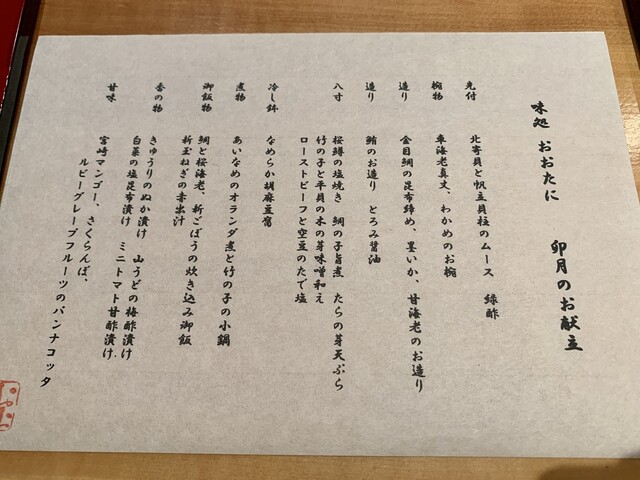 卯月のお献立
味処 おおたに
先付 北寄貝と帆立貝柱のムース 緑酢
椀物 車海老真丈、わかめのお椀
造り 金目鯛の昆布締め、墨いか、甘海老のお造り
造り 鮪のお造り とろみ醤油
八寸 桜鱒の塩焼き 鯛の子旨煮 たらの芽天ぷら
竹の子と平貝の木の芽味噌和え
ローストビーフと空豆のたで塩
冷し鉢 なめらか胡麻豆腐
煮物 あいなめのオランダ煮と竹の子の小鍋
御飯物 鯛と桜海老、新ごぼうの炊き込み御飯
新玉ねぎの赤出汁
香の物 きゅうりのぬか漬け 山うどの梅酢漬け
白菜の塩昆布漬け ミニトマト甘酢漬け.
甘味 宮崎マンゴー、さくらんぼ、
ルビーグレープフルーツのパンナコッタ